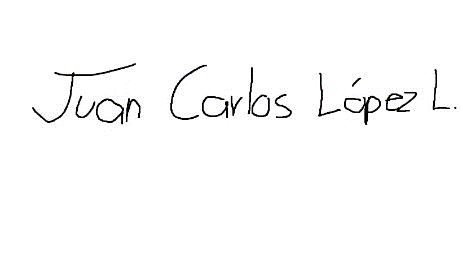 Juan Carlos López L.